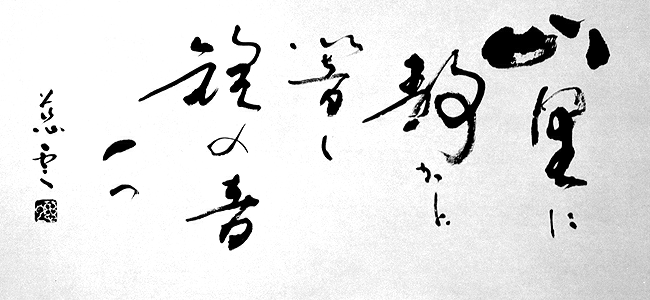 山里に
静かに
響し
鐘の音
一つ
慈雲